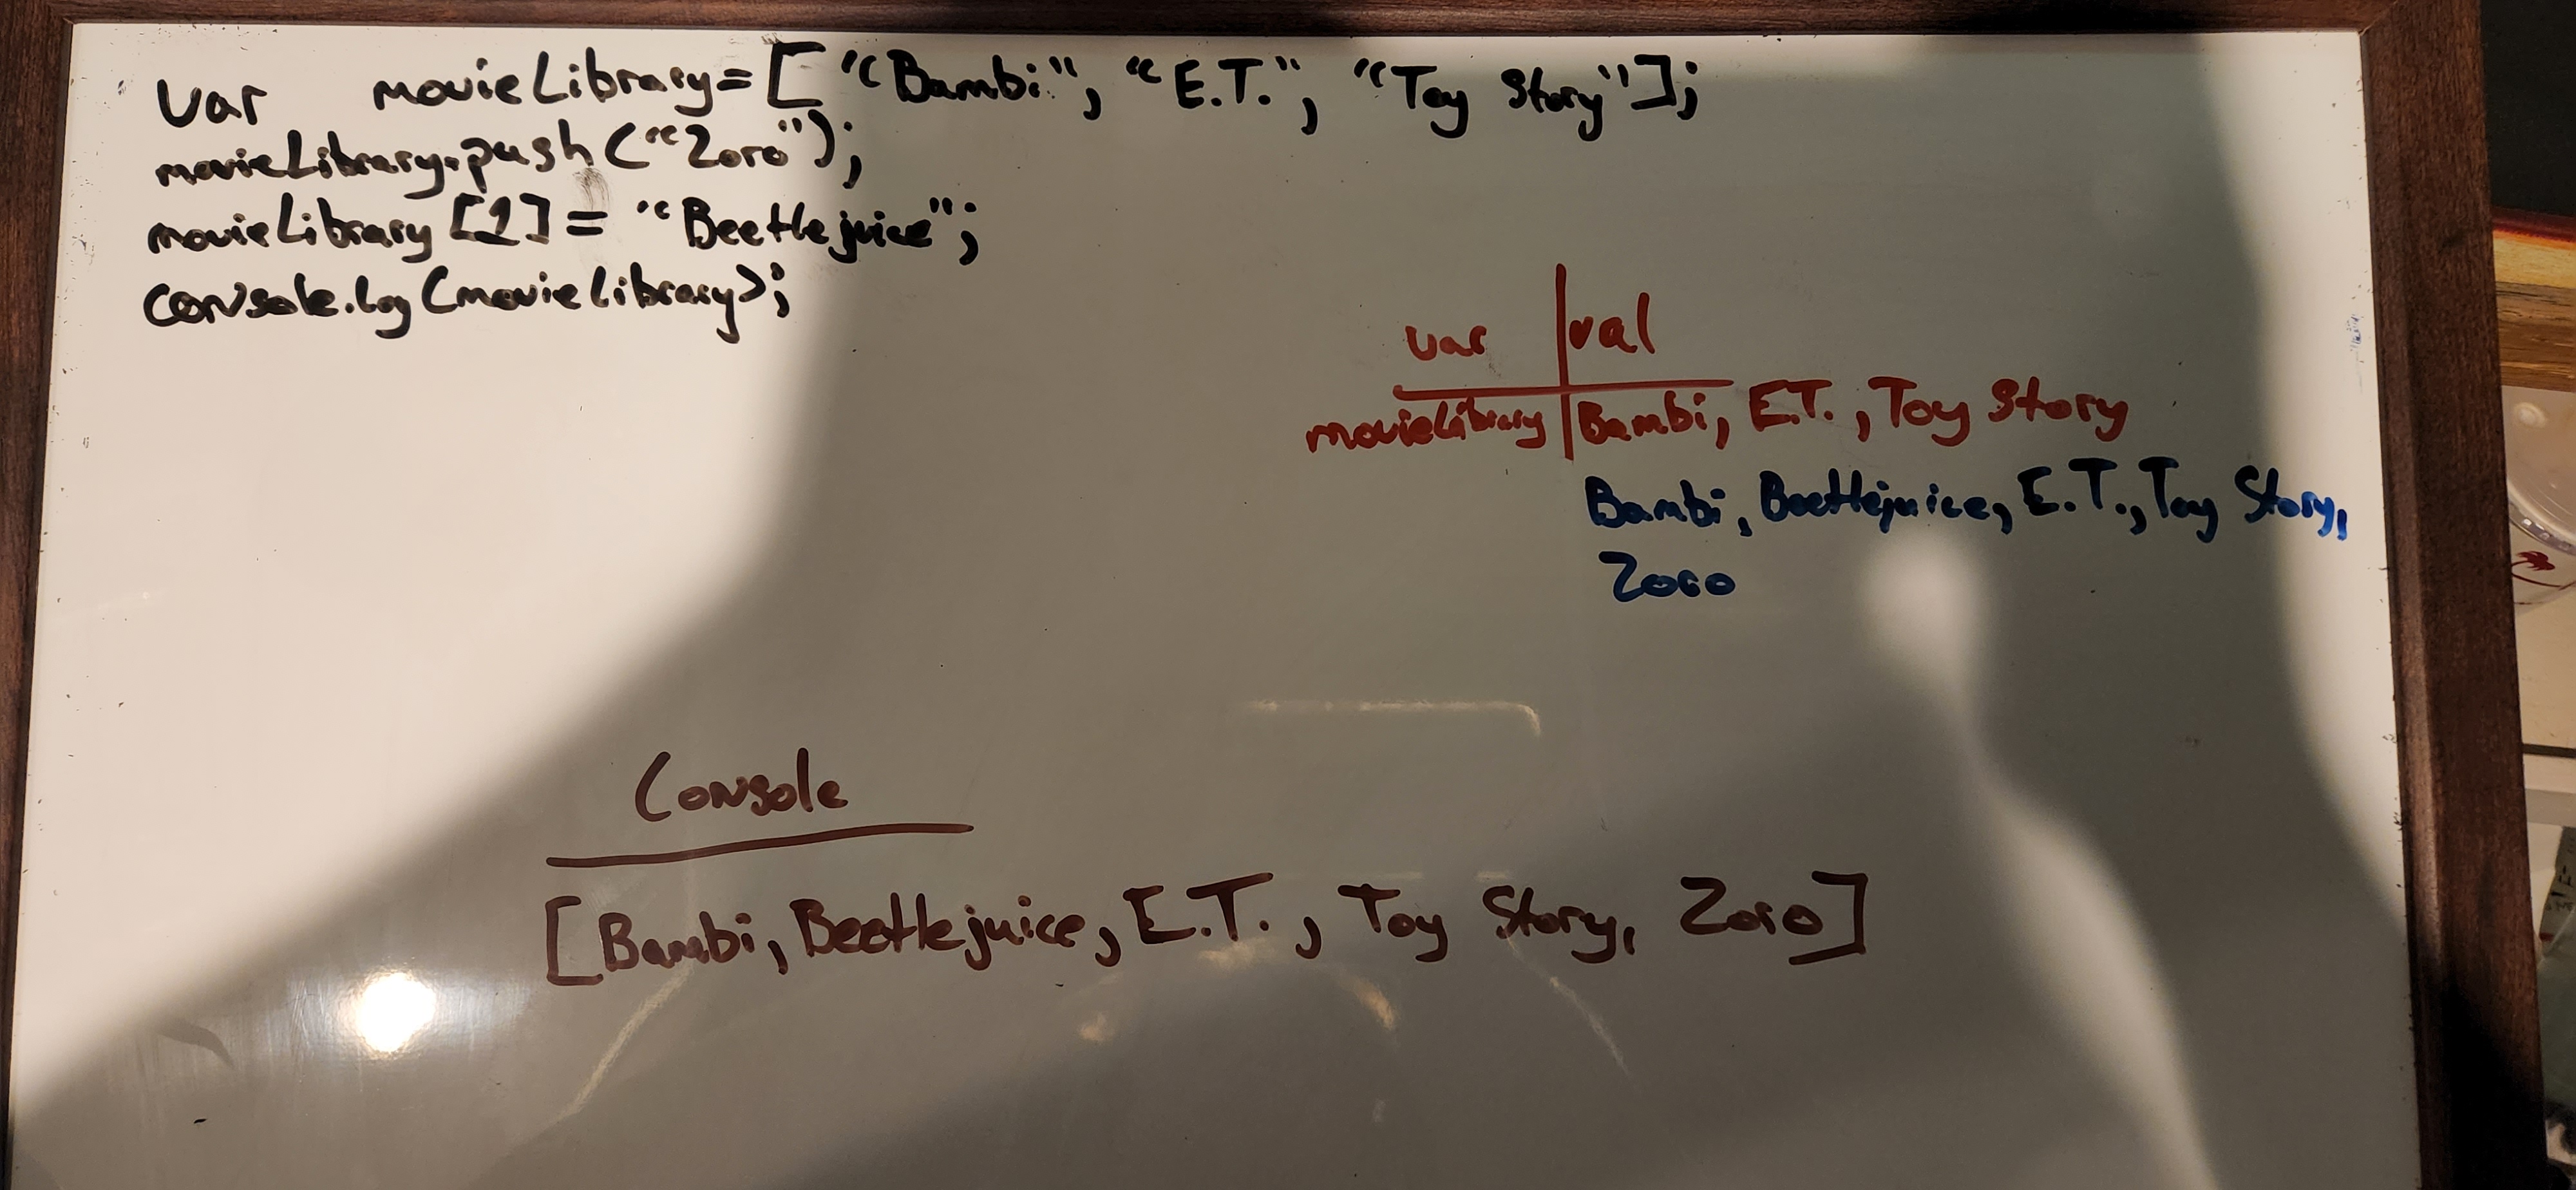 var movieLibrary = ["Bambi", "E.T.", "Toy Story"];
movieLibrary.push("Zoro");
movieLibrary [1] = "Beetlejuice";
console.log(movieLibrary);
var | val
movieLibrary | Bambi, E.T., Toy Story
Bambi, Beetlejuice, E.T., Toy Story,
Zoro
Console
[Bambi, Beetlejuice, E.T., Toy Story, Zoro]